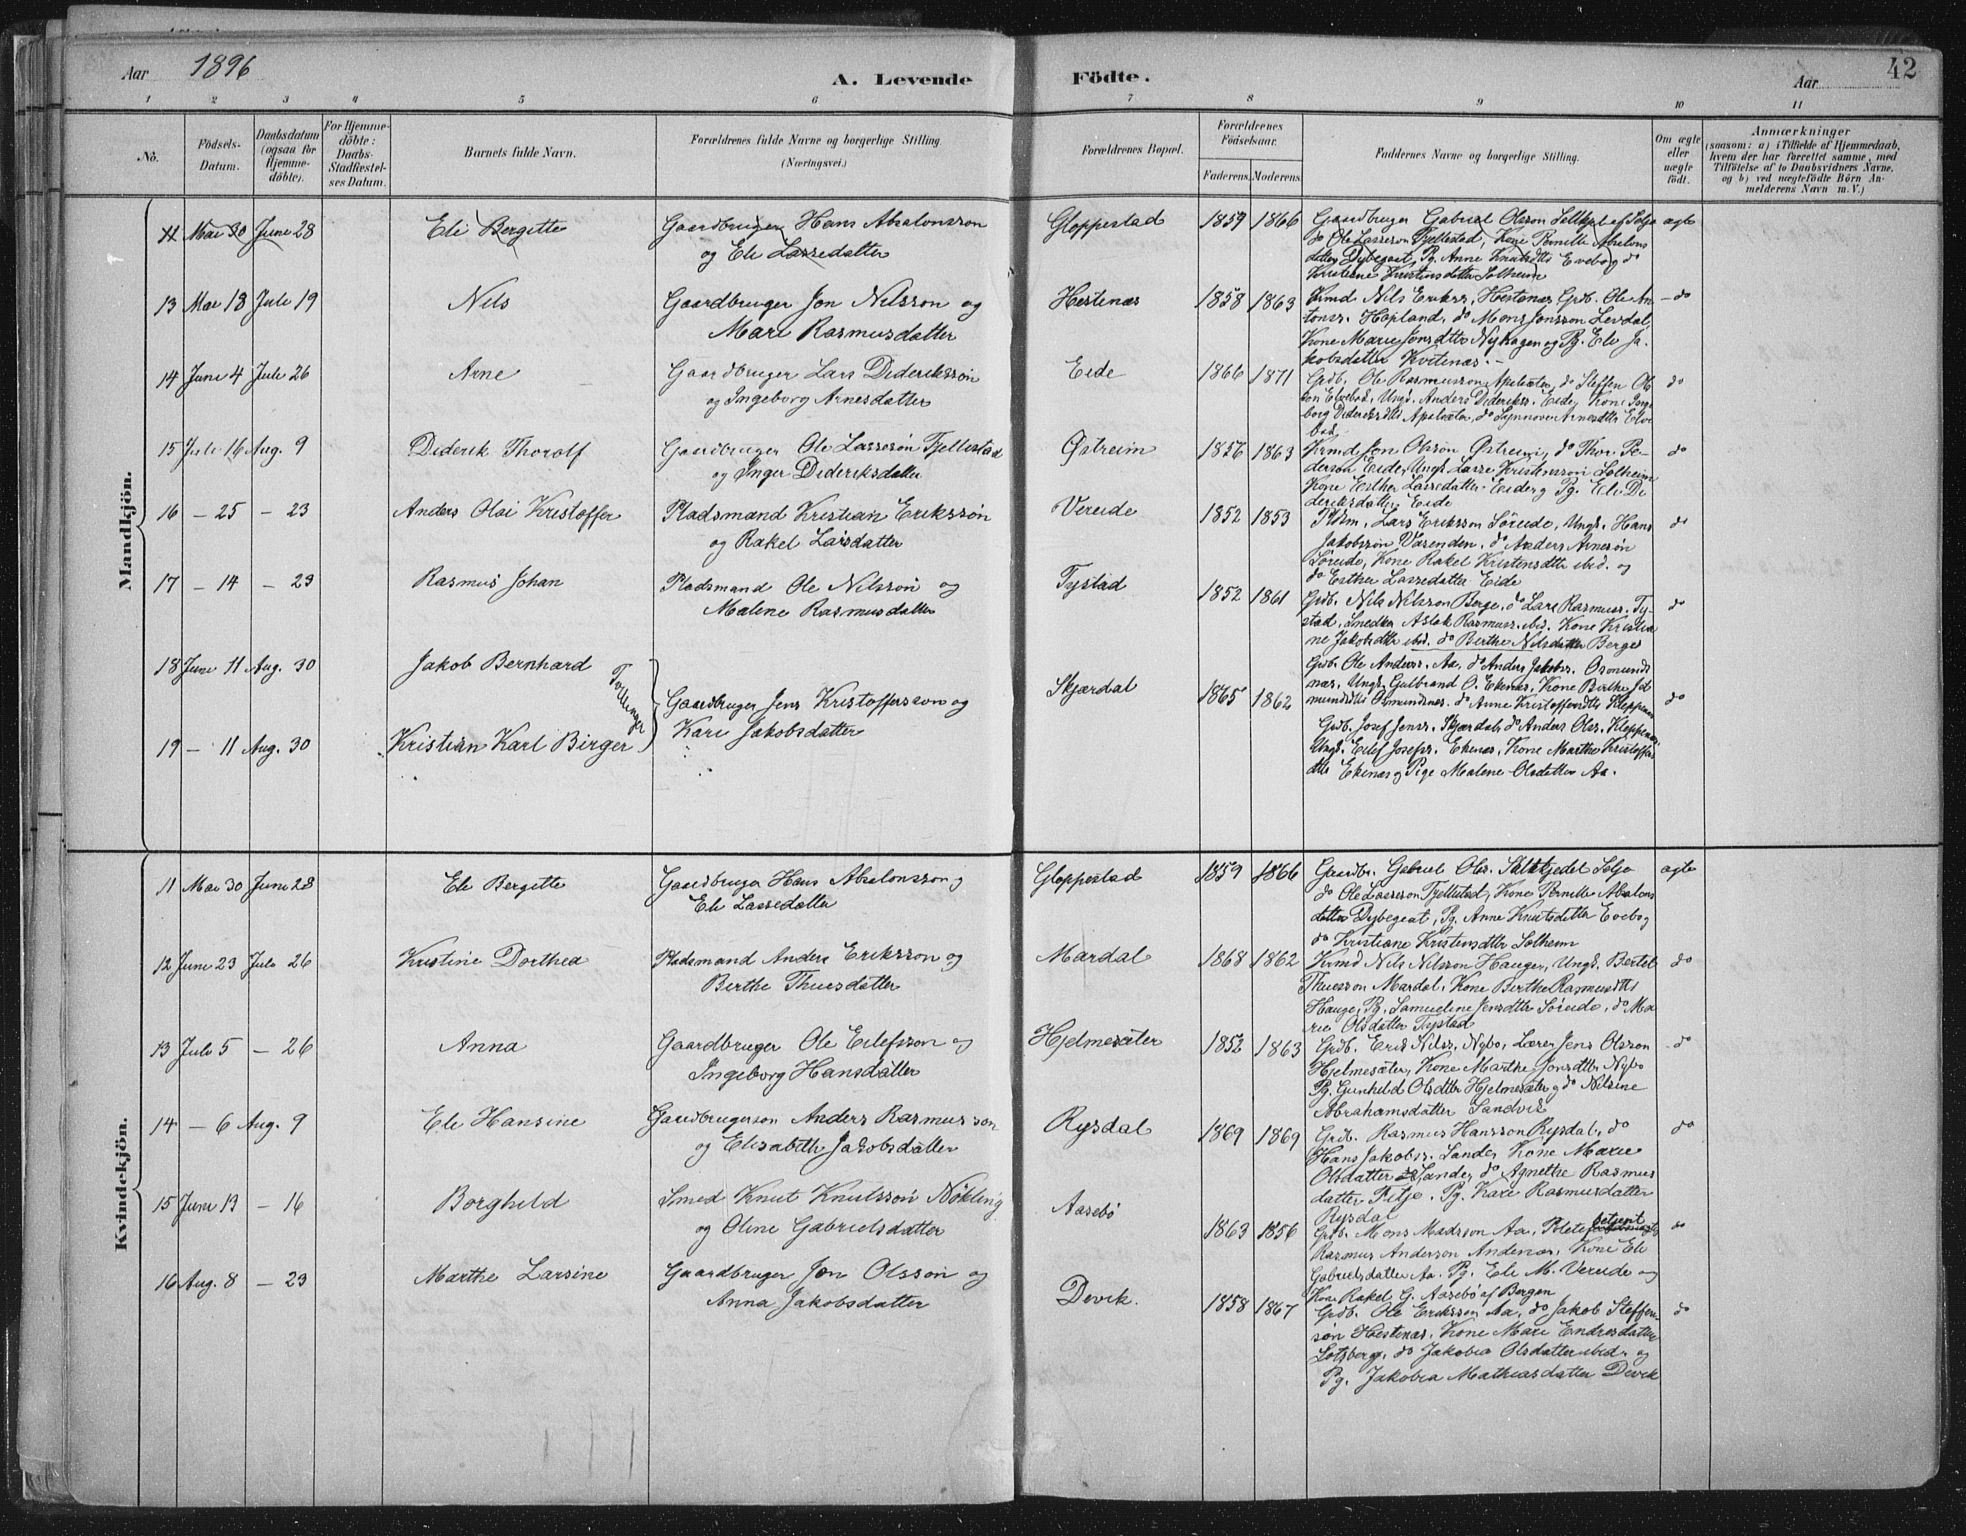 Aar 1896
A. Levende
Födte.
Aar
42
1 2 3 4 5 6 7 8 9 10 11
No.
Födsels-
Datum.
Daabsdatum
(ogsaa for
Hjemme-
döbte).
For Hjemme-
döbte:
Daabs-
Stadfæstel-
ses Datum.
Barnets fulde Navn.
Forældrenes fulde Navne og borgerlige Stilling.
(Næringsvei.)
Forældrenes Bopæl.
Forældrenes
Födselsaar.
Faderens. Moderens.
Faddernes Navne og borgerlige Stilling.
Om ægte
eller
uægte
födt.
Anmærkninger
(saasom: a) i Tilfælde af Hjemmedaab,
hvem der har forrettet samme, med
Tilföielse af to Daabsvidners Navne,
og b) ved uægtefödte Börn An-
melderens Navn m. V.)
Mandkjön.
11 Mai 30 Juni 28 Eli Bergitte Gaardbruger Hans Absalonsson
og Eli Lassedatter
Gloppestad 1859 1866 Gaardbruger Gabriel Olsson af Selje ægte
do Ole Lasseson Fjellestad, Kone Pernille Absalons
datter Dybegeat, Pg. Anne Knutsdtr Evebø og do
Kristiane Kristensdatter Solheim
13 Mai 13 Juli 19 Nils Gaardbruger Jon Nilsson og
Mari Rasmusdatter
Hestenæs 1858 1863 Krmd Nils Eriks., Hestenæs, Grdb. Ole An- - do
tons. Hopland, do Mons Jonsson Levdal,
Kone Marie Jonsdtter Nyhagen og Pg. Eli Ja-
kobsdatter Kvitenæs. -
14 Juni 4 Juli 26 Arne Gaardbruger Lars Didriksson
og Ingeborg Arnesdatter
Eide 1866 1871 Grdb. Ole Rasmusson Apalsæter, do Steffen Ol- do
son Elvebød, Ungk. Anders Dideriks. Eide, Kone Inge
borg Dideriksdtr Apalsæter, do Synnøve Arnesdtr Elve
bød.
15 Juli 16 Aug. 9 Diderik Thorolf Gaardbruger Ole Lassesøn Fjellestad
og Inger Dideriksdatter
Østreim 1856 1863 Krmd Jon Olsson, Østreim, do Thor Pe- do
derson Eide, Ungk. Lasse Kristensson Solheim
Kone Esther Lassedatter Eide og Pg. Eli Di
deriksdatter Eide
16 - 25 - 23 Anders Olai Kristoffer Pladsmand Kristian Eriksson
og Rakel Larsdatter
Vereide 1852 1853 Pldsm. Lars Eriksson Söreide, Ungk. Hans do
Jakobsson Væsenden, do Anders Arnesön
Söreide, Kone Rakel Kristensdtr ibid. og
do Esther Lassedatter Eide
17 - 14 - 23 Rasmus Johan Pladsmand Ole Nilsson og
Malene Rasmusdatter
Tystad 1852 1861 Grdb. Nils Nilsson Berge, do Lars Rasmuss. Ty- do
stad, Snedker Aslak Rasmuss. ibid. Kone Kristia
ne Jakobsdtr ibid. do Berthe Nilsdatter Berge
18 Juni 11 Aug. 30 Jakob Bernhard
Tvillinger
Gaardbruger Jens Kristoffersson og
Kari Jakobsdatter
Skjærdal 1865 1862 Grdb. Ole Anders. Aa, do Anders Jakobs. Osmunds
næs, Ungk. Gulbrand O. Ekenæs, Kone Berthe Id
mundsdtr Osmundnæs. do Anne Kristoffersdtr Kleppenæs do
19 - 11 Aug. 30 Kristian Karl Birger
Grdb. Josef Jens. Skjærdal, do Anders Ols. Kleppenæs.
Ungk. Eilef Josefs. Ekenæs, Kone Marthe Kristoffers
dtr Ekenæs og Pige Malene Olsdatter Aa.
Kvindekjön.
11 Mai 30 Juni 28 Eli Bergitte Gaardbruger Hans Absalonsson og
Eli Lassedatter
Gloppestad 1859 1866 Gaardbr. Gabriel Ols. Selje ægte
do Ole Lasseson Fjellestad, Kone Pernille Absalons
datter Dybegeat, Pg. Anne Knutsdatter Evebø og
do Kristiane Kristensdtr Solheim
12 Juni 23 Juli 26 Kristine Dorthea Pladsmand Anders Eriksson og
Berthe Thuesdatter
Mardal 1868 1862 Krmd Nils Nilsson Hauge, Ungk. Bertel do
Thuesson Mardal, Kone Berthe Rasmusdtr
Hauge, Pg. Samueline Jensdtr Söreide, do Ma
rie Olsdatter Tystad
13 Juli 5 - 26 Anna Gaardbruger Ole Eilefsson og
Ingeborg Hansdatter
Hjelmesæter 1852 1863 Grdb. Erik Nils. Nybø, Lærer Jens Olsson - do
Hjelmesæter, Kone Marthe Jonsdtr Nybø
Pg. Gunhild Olsdtr Hjelmesæter og do Nilsine
Abrahamsdatter Sandvik
14 - 6 Aug. 9 Eli Hansine Gaardbrugerson Anders Rasmusson
og Elisabeth Jakobsdatter
Rysdal 1869 1869 Grdb. Rasmus Hansson Rysdal, do do
Hans Jakobs. Sande, Kone Marie
Olsdatter Sande, do Agnethe Rasmus
datter Fitje. Pg. Kari Rasmusdatter
Rysdal
15 Juni 13 - 16 Borghild Smed Knut Knutsson Nökling
og Oline Gabrielsdatter
Aasebø 1863 1856 Grdb. Mons Madsson Aa, betjent do
Rasmus Anderson Andenæs, Kone Eli
Gabrielsdatter Aa. Pg. Eli M. Vereide og
Kone Rakel G. Aasebø af Bergen
16 Aug. 8 - 23 Marthe Larsine Gaardbruger Jon Olsson og
Anna Jakobsdatter
Devik. 1858 1867 Grdb. Ole Eriksson Aa, do Jakob Steffen- do
søn Hestenæs, Kone Mari Endresdatter
Lotsberg, do Jakobia Olsdatter ibid. og
Pg. Jakobia Mathiasdatter Devik